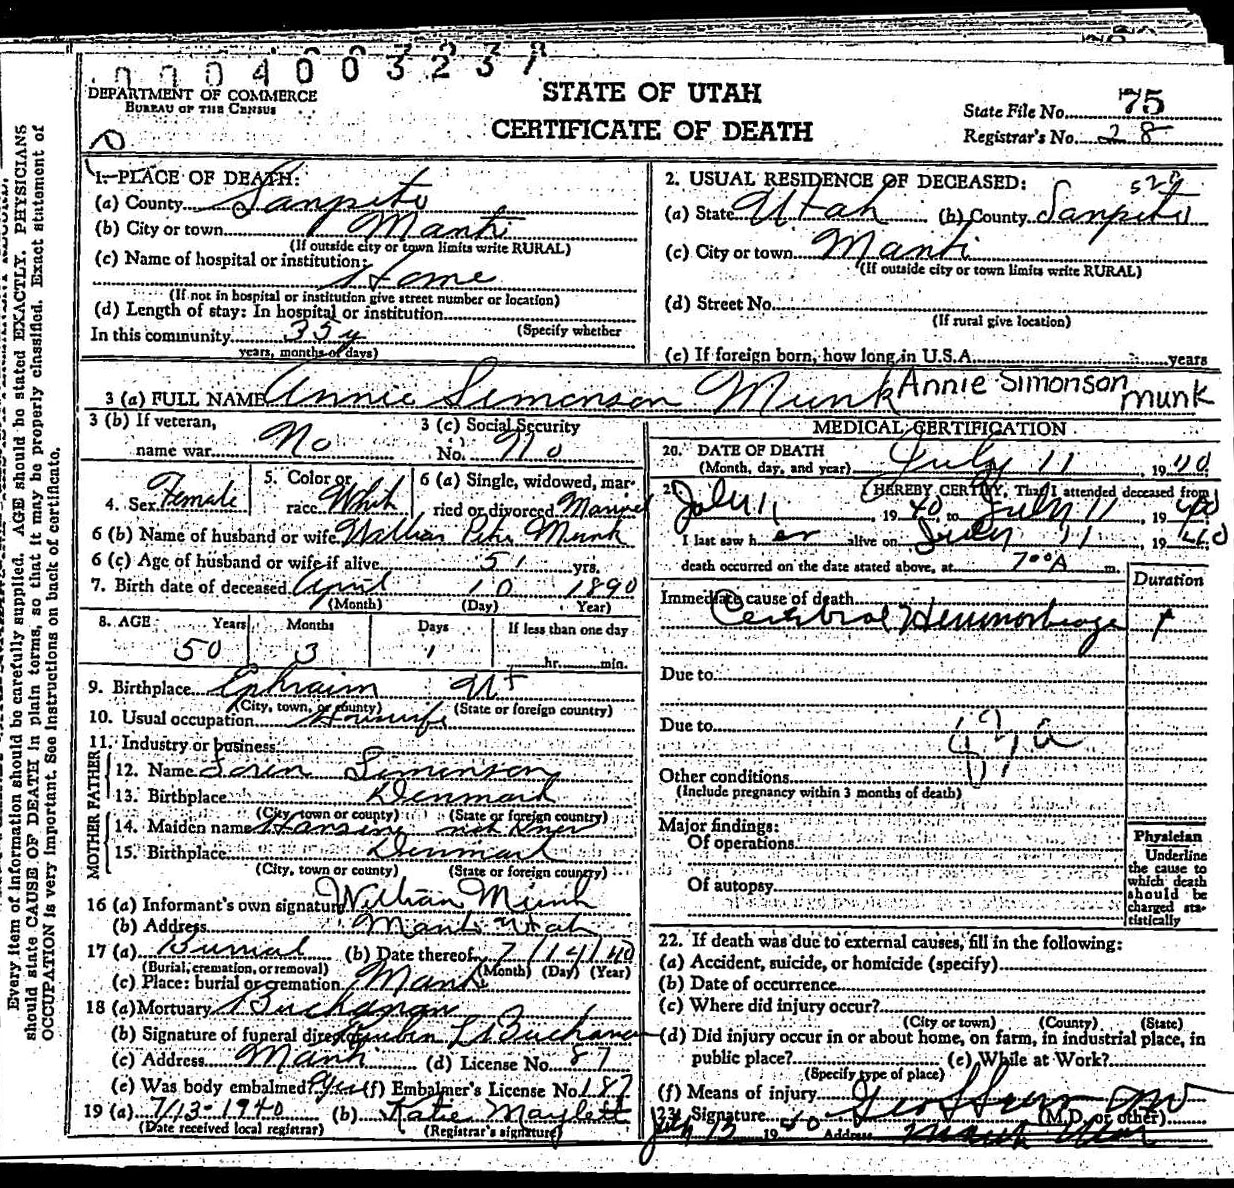 DEPARTMENT OF COMMERCE
BUREAU OF THE CENSUS
STATE OF UTAH
CERTIFICATE OF DEATH
State File No. 75
Registrar's No. 28
1. PLACE OF DEATH:
(a) County Sanpete
(b) City or town Manti
(If outside city or town limits write RURAL)
(c) Name of hospital or institution:
Home
(If not in hospital or institution give street number or location)
(d) Length of stay: In hospital or institution
(Specify whether
In this community 35 y
years, months or days)
2. USUAL RESIDENCE OF DECEASED:
(a) State Utah (b) County Sanpete
(c) City or town Manti
(If outside city or town limits write RURAL)
(d) Street No.
(If rural give location)
(e) If foreign born, how long in U.S.A. years
3 (a) FULL NAME Annie Simonson Munk Annie Simonson Munk
3 (b) If veteran, name war No
3 (c) Social Security No. No
4. Sex Female
5. Color or race White
6 (a) Single, widowed, married or divorced Married
6 (b) Name of husband or wife William Peter Munk
6 (c) Age of husband or wife if alive 51 yrs.
7. Birth date of deceased April 10 1890
(Month) (Day) Year)
8. AGE: Years Months Days If less than one day
50 3 1 hr. min.
9. Birthplace Ephraim Ut
(City, town, or county) (State or foreign country)
10. Usual occupation Housewife
11. Industry or business
FATHER
12. Name Soren Simonson
13. Birthplace Denmark
(City town or county) (State or foreign country)
MOTHER
14. Maiden name Hansine not know
15. Birthplace Denmark
(City, town or county) (State or foreign country)
16 (a) Informant's own signature William Munk
(b) Address Manti Utah
17 (a) Burial (b) Date thereof 7/14/40
(Burial, cremation, or removal) (Month) (Day) (Year)
(c) Place: burial or cremation Manti
18 (a) Mortuary Buchanan
(b) Signature of funeral director Buchanan
(c) Address Manti (d) License No. 87
(e) Was body embalmed? Yes (f) Embalmer's License No. 187
19 (a) 7/13-1940 (b) Katie Maylett
(Date received local registrar) (Registrar's signature)
MEDICAL CERTIFICATION
20. DATE OF DEATH
(Month, day, and year) July 11, 1940
I HEREBY CERTIFY, That I attended deceased from
July 11, 1940 to July 11, 1940
I last saw her alive on July 11, 1940
death occurred on the date stated above, at 7 00 A m.
Duration
Immediate cause of death
Cerebral Hemmorhage
Due to
Due to
Other conditions
(Include pregnancy within 3 months of death)
Major findings:
Of operations
Of autopsy
Physician
Underline the cause to which death should be charged statistically
22. If death was due to external causes, fill in the following:
(a) Accident, suicide, or homicide (specify)
(b) Date of occurrence
(c) Where did injury occur?
(City or town) (County) (State)
(d) Did injury occur in or about home, on farm, in industrial place, in
public place? (e) While at Work?
(Specify type of place)
(f) Means of injury
23. Signature (M.D. or other)
July 13 1940 Address Manti Utah
Every item of information should be carefully supplied. AGE should be stated EXACTLY. PHYSICIANS
should state CAUSE OF DEATH in plain terms, so that it may be properly classified. Exact statement of
OCCUPATION is very important. See instructions on back of certificate.